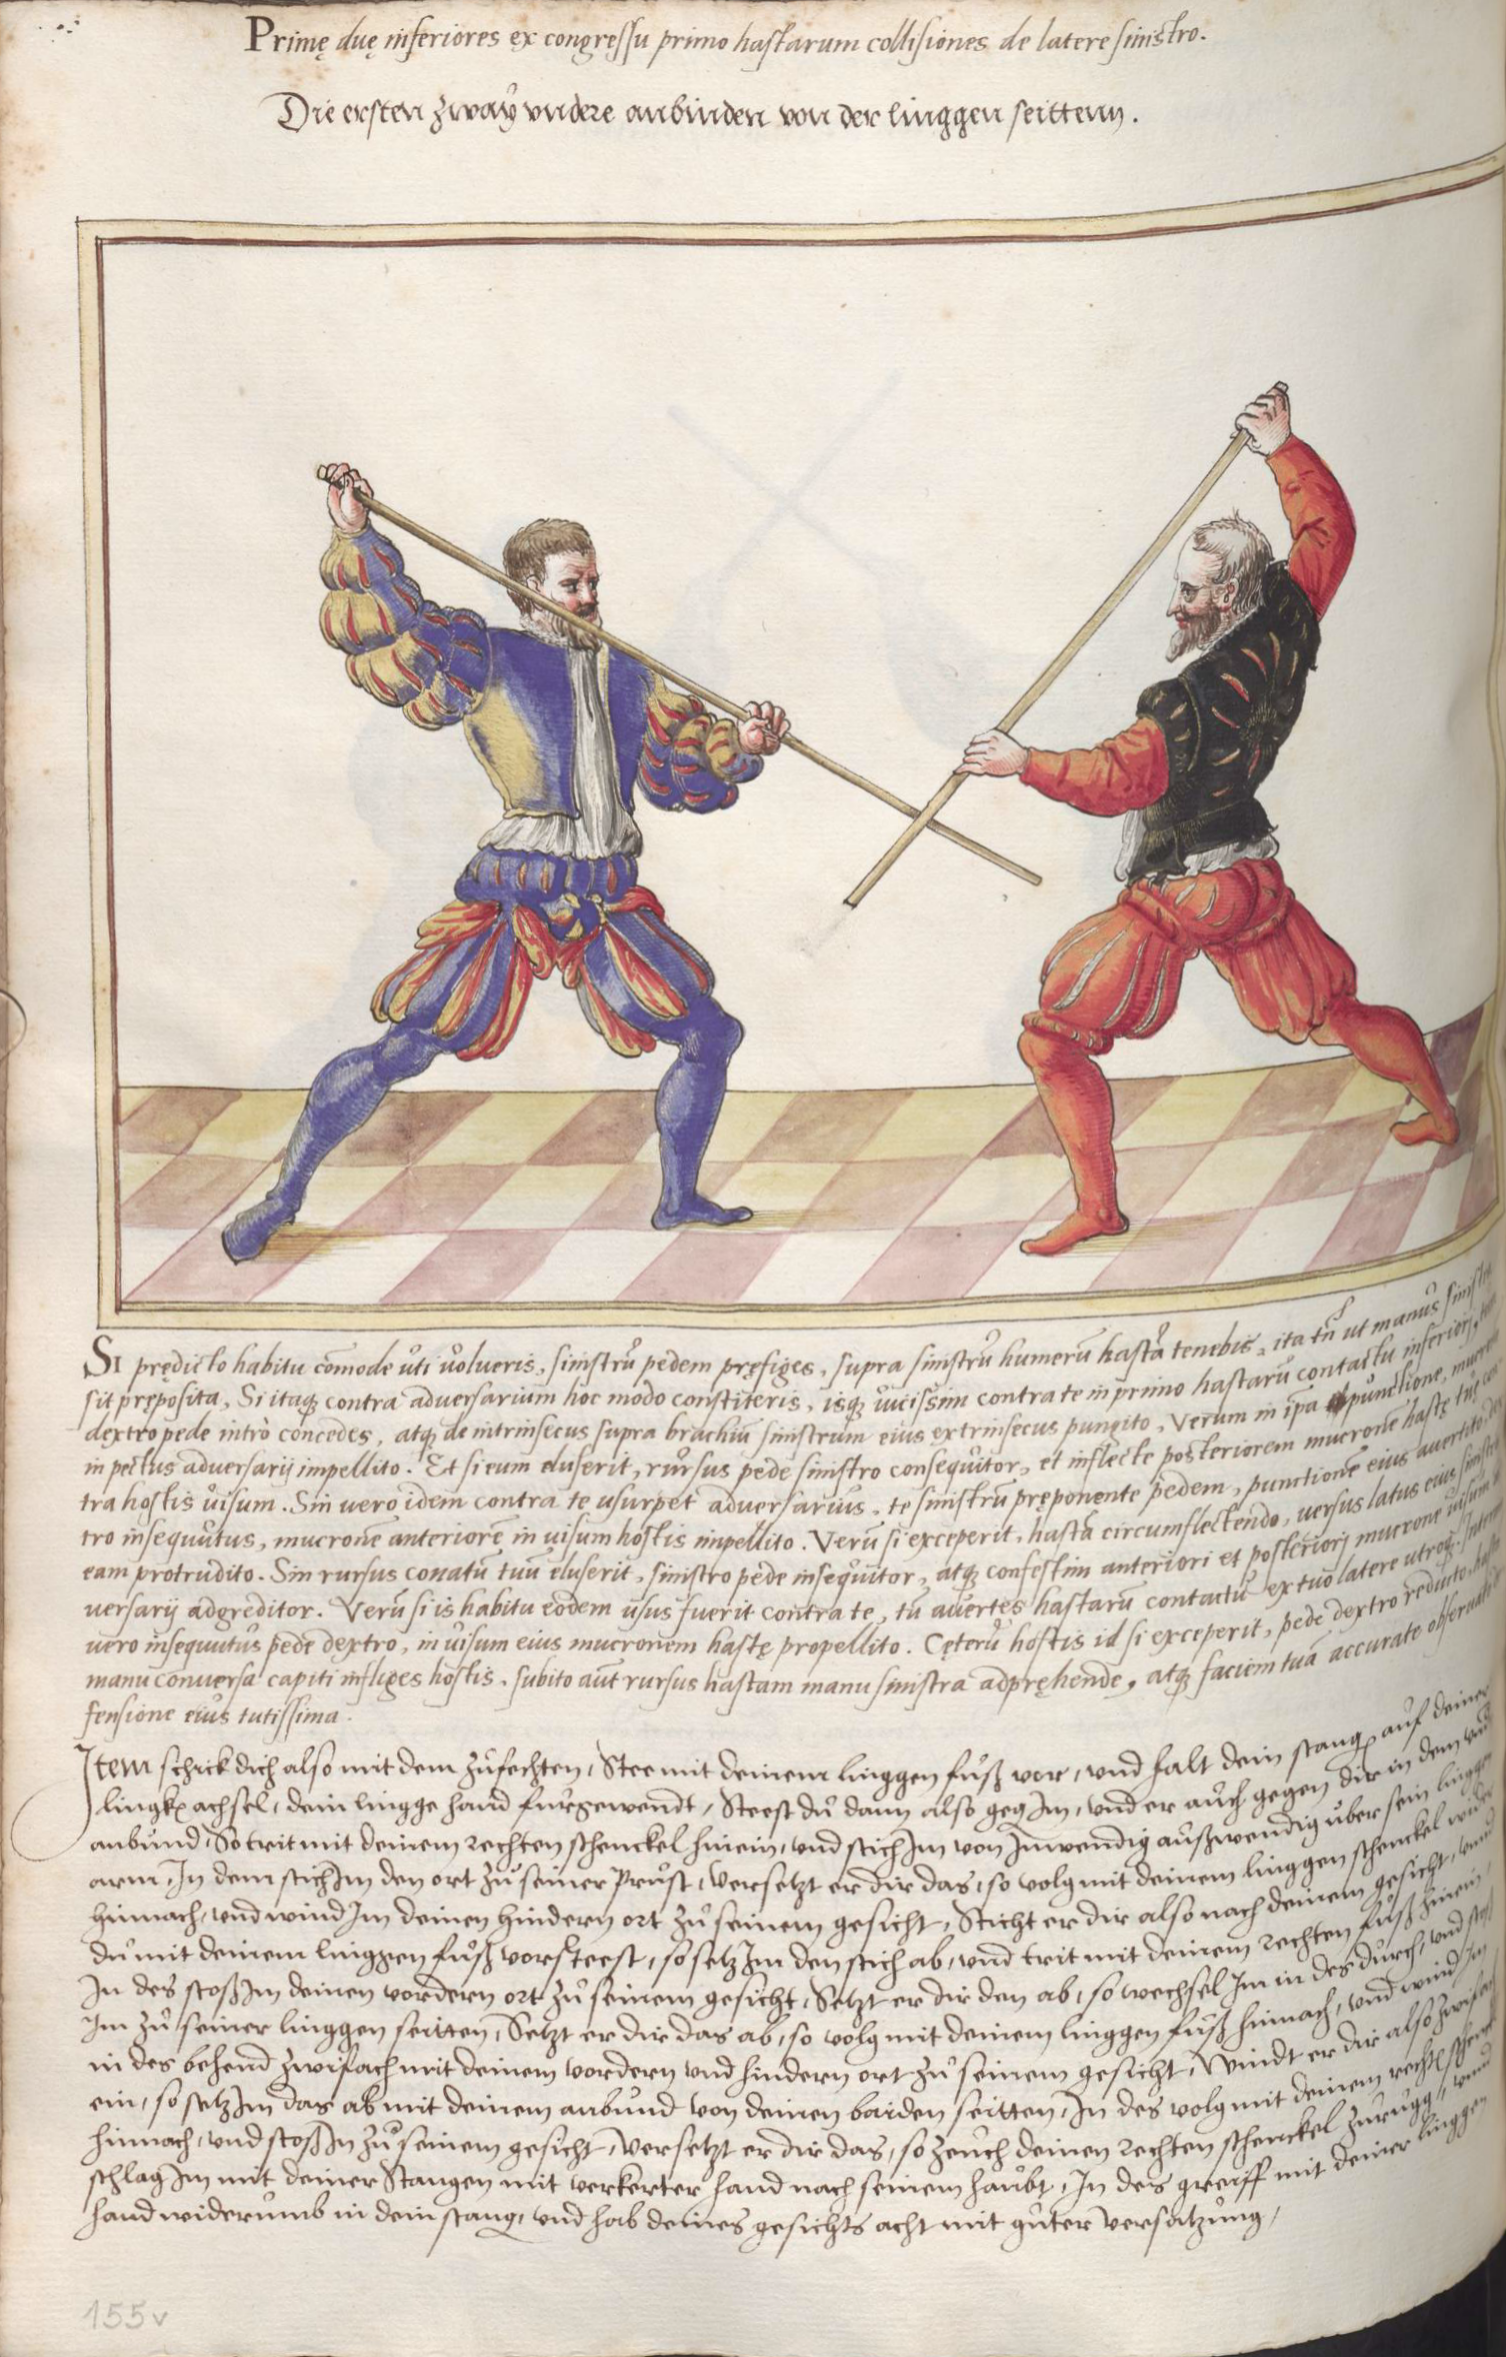 Primę duę inferiores ex congressu primo hastarum collisiones de latere sinistro.
Die ersten zwaÿ vndere anbinden von der linggen seittenn.
SI prędicto habitu cōmode ůti ůolueris, sinistrů pedem pręfiges, supra sinistrů humerū hastā tenebis, ita tn̄ ut manůs sinistra
sit pręposita, Si itaq; contra adversariům hoc modo constiteris, isq; ůicissim contra te in primo hastarů contactu inferiorj,
dextro pede intrò concedes, atq; de intrinsecus supra brachiū sinistrum eius extrinsecus pungito, Verum in ipa punctione,
in pectus adversarij impellito. Et si eum eluserit, růrsus pede sinistro conseqůitor, et inflecte posteriorem mucronē hastę tuę con
tra hostis ůisum. Sin uero idem contra te usurpet adversariůs, te sinistrū pręponente pedem, punctionē eius avertito,
tro inseqůtus, mucronē anteriorē in uisum hostis impellito. Verū si exceperit, hastā circumflectendo, versus latus eius sinistrū
eam protrudito. Sin rursus conatū tuū eluserit, sinistro pede inseqůitor, atq; confestim anteriori et posteriorj mucrone uisum
versarij adgreditor. Verū si is habitu eodem usus fuerit contra te, tu avertes hastarū contactů ex tuo latere utroq;,
uero insequutůs pede dextro, in ůisum eius mucronem hastę propellito. Cęterů hostis id si exceperit, pede dextro reducto,
manu conversa capiti infliges hostis, subito aut rursus hastam manu sinistra adpręhende, atq; faciem tuā accurate
fensione eiůs tutissima.
Item schick dich also mit dem zůfechten, Stee mit deinem linggen fůß vor, vnd halt dein stang auf deiner
lingkn achsel, dein lingge hand fürgewendt, Steest dů dann also geg Im, vnd er aůch gegen dir in dem
anbund, So trit mit deinem rechten schenckel hinein, vnd stich Im von Inwendig außwendig über sein linggen
arm, In dem stich Im den ort zů seiner Průst, Versetzt er dir das, so volg mit deinem linggen schenckel
hinnach, vnd wind Im deinen hindern ort zů seinem gesicht, Sticht er dir also nach deinem gesicht, vnnd
du mit deinem linggen fůß vorsteest, so setz Im den stich ab, vnd trit mit deinem rechten fůß hinein,
In des stoß Im deinen vordern ort zů seinem gesicht, Setzt er dir den ab, so wechsel Im in des durch, vnd stoß
Im zů seiner linggen seitten, Setzt er dir das ab, so volg mit deinem linggen fůß hinnach, vnd wind Im
in des behend zwifach mit deinem vordern vnd hindern ort zů seinem gesicht, Windt er dir also zwifach
ein, so setz Im das ab mit deinem anbůnd von deinen baiden seitten, In des volg mit deinem rechtn schenckel
hinnach, vnd stoß In zů seinem gesicht, Versetzt er dir das, so zeuch deinen rechten schenckel zůrůgg, vnnd
schlag Im mit deiner Stangen mit verkerter hand nach seinem haůbt, In des greiff mit deiner linggen
hand widerumb in dein stang, vnd hab deines gesichts acht mit gůter versatzung,
155v